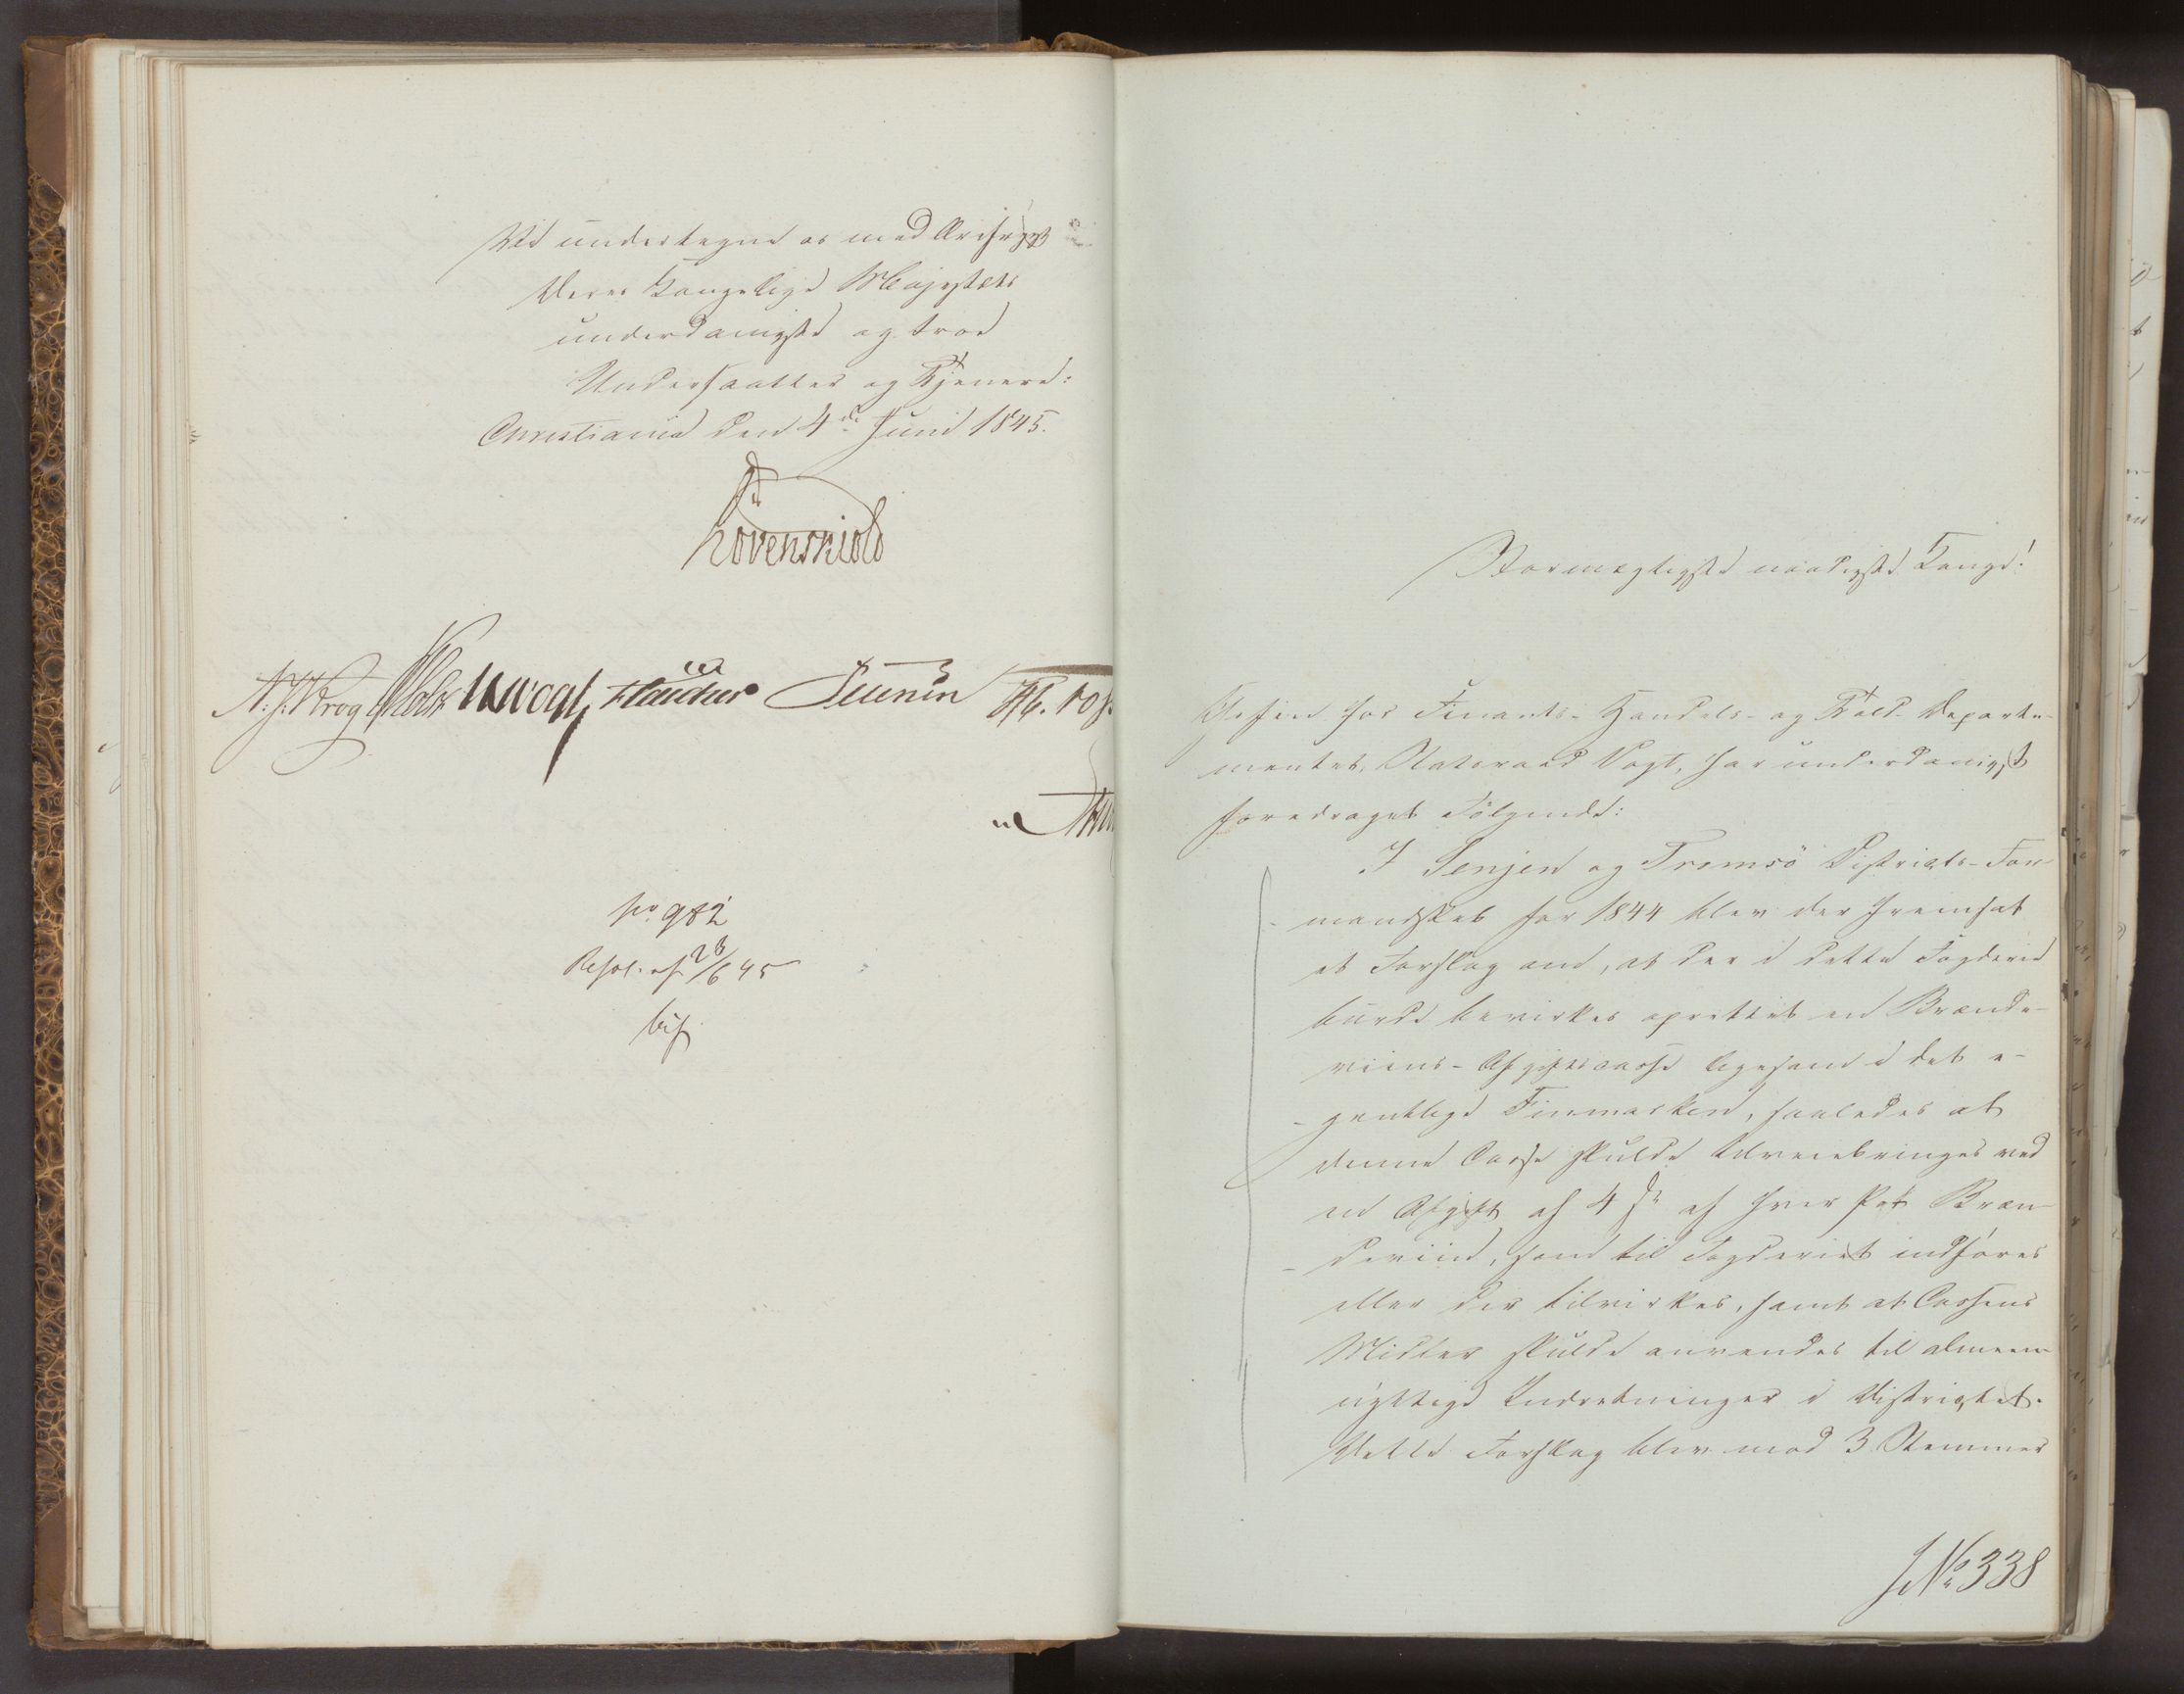 Vi undertegne os med Ærefrygt
Deres Kongelige Majestæts
underdanigste og troe
Undersaatter og Tjenere:
Christiania den 4de Juni 1845.
Lövenskiold
N. J. Krog Holst JHVogt Fleischer Petersen
No 982
Resol. af 28/6 45
Stormægtigste naadigste Konge!
Chefen for Finants- Handels- og Told-Departe-
mentet, Statsraad Vogt, har underdanigst
foredraget Følgende:
I Senjen og Tromsö Districts-For-
mandskab for 1844 blev der fremsat
et Forslag om, at der i dette Fogderie
burde bevirkes oprettet en Brænde-
viins-Afgiftscasse ligesom i det e-
gentlige Finmarken, saaledes at
denne Casse skulde tilveiebringes ved
en Afgift af 4 s af hver Pot Bræn-
deviin, som til Fogderiet indføres
eller der tilvirkes, samt at Cassens
Midler skulde anvendes til almeen-
nyttige Indretninger i Districtet.
Dette Forslag blev mod 3 Stemmer
JNo 338